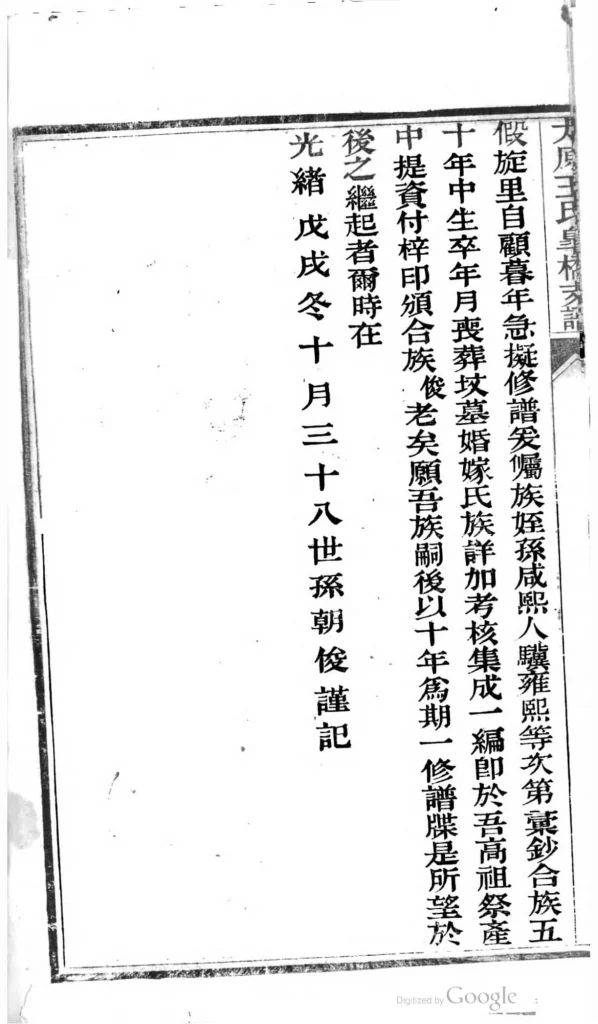 太原王氏皐橋支譜
假旋里自顧暮年急擬修譜爰屬族姪孫咸熙人驥雍熙等次第彙鈔合族五
十年中生卒年月喪葬坟墓婚嫁氏族詳加考核集成一編卽於吾高祖祭產
中提資付梓印頒合族俊老矣願吾族嗣後以十年爲期一修譜牒是所望於
後之繼起者爾時在
光緒戊戌冬十月三十八世孫朝俊謹記
Digitized by Google